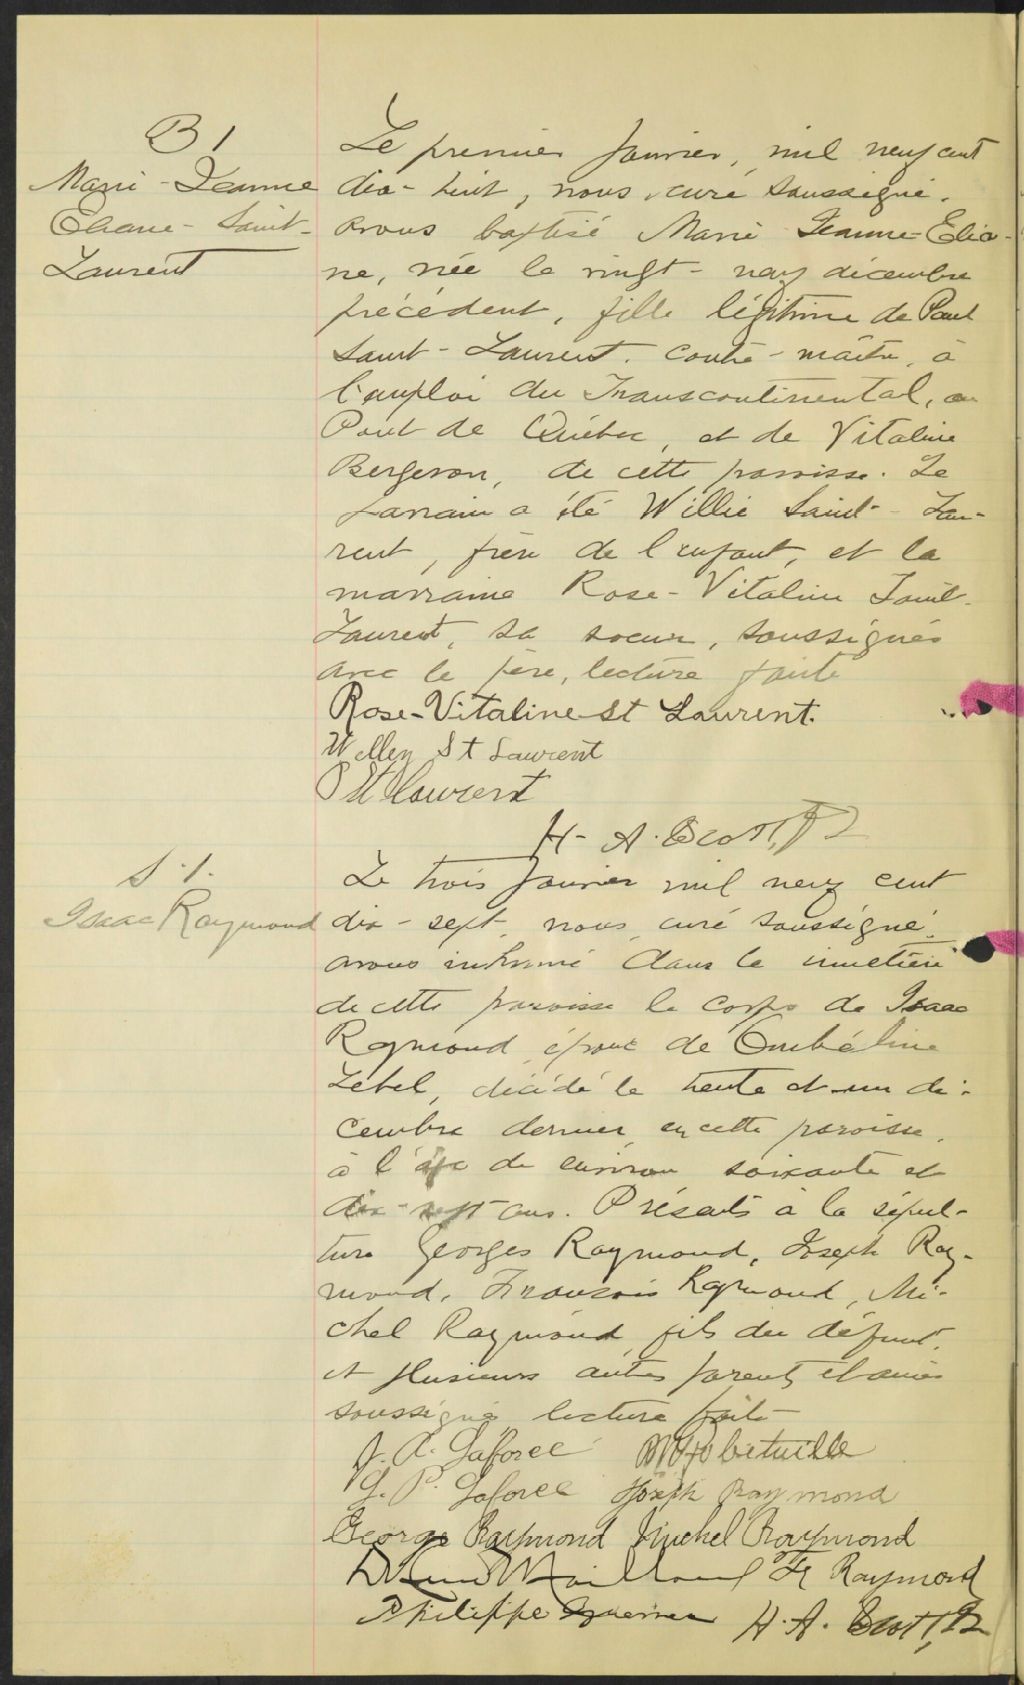 B 1
Marie-Jeanne
Eliane-Saint-
Laurent
Le premier Janvier, mil neuf cent
dix-huit, nous, curé soussigné,
avons baptisé Marie Jeanne-Elia-
ne, née le vingt-neuf décembre
précédent, fille légitime de Paul
Saint-Laurent, contre-maître, à
l'emploi du Transcontinental, au
Pont de Québec, et de Vitaline
Bergeron, de cette paroisse. Le
parrain a été Willie Saint-Lau-
rent, frère de l'enfant, et la
marraine Rose-Vitaline Saint-
Laurent, sa soeur, soussignés
avec le père, lecture faite
Rose-Vitaline St Laurent.
Willey St Laurent
P St Laurent
H. A. Scott, Ptr
S. 1.
Isaac Raymond
Le trois Janvier mil neuf cent
dix-sept, nous, curé soussigné,
avons inhumé dans le cimetière
de cette paroisse le corps de Isaac
Raymond, époux de Ombéline
Lebel, décédé le trente et un dé-
cembre dernier, en cette paroisse,
à l'âge de environ soixante et
dix-sept ans. Présents à la sépul-
ture Georges Raymond, Joseph Ray-
mond, François Raymond, Mi-
chel Raymond fils du défunt,
et plusieurs autres parents et amis
soussignés lecture faite
J. A. Laforce Robitaille
G. P. Laforce Joseph Raymond
George Raymond Michel Raymond
Fr Raymond
Philippe H. A. Scott, Ptr